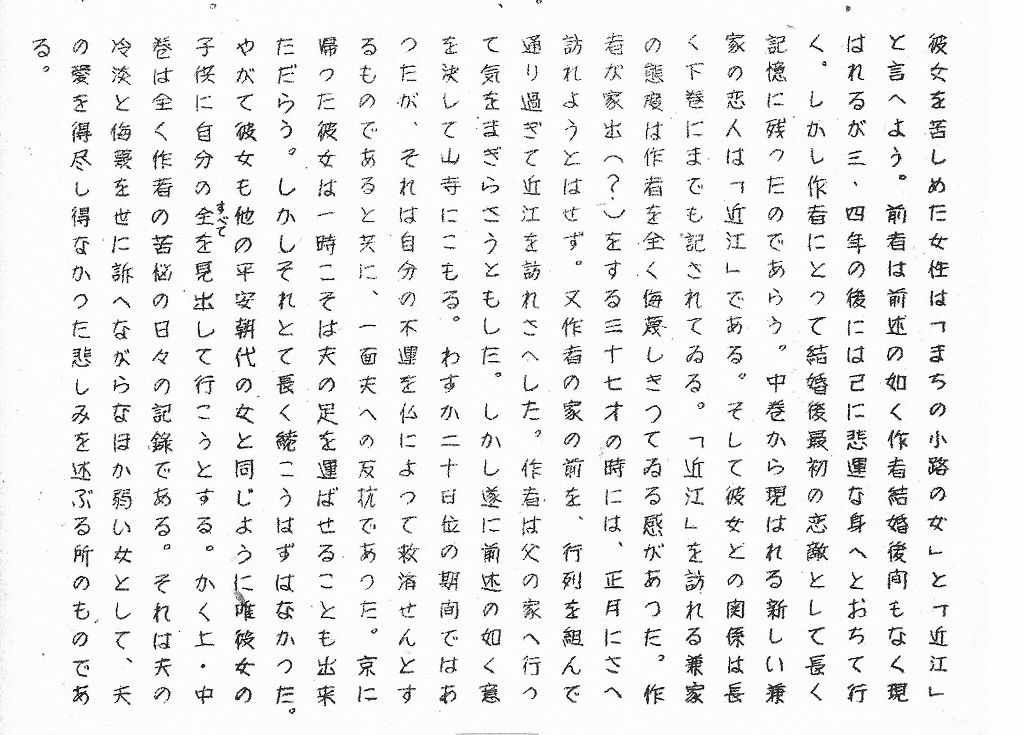 彼女を苦しめた女性は「まちの小路の女」と「近江」
と言へよう。前者は前述の如く作者結婚後間もなく現
はれるが三、四年の後には己に悲運な身へとおちて行
く。しかし作者にとつて結婚後最初の恋敵として長く
記憶に残つたのであらう。中巻から現はれる新しい兼
家の恋人は「近江」である。そして彼女との関係は長
く下巻にまでも記されてゐる。「近江」を訪れる兼家
の態度は作者を全く侮蔑しきつてゐる感があつた。作
者が家出(?)をする三十七才の時には、正月にさへ
訪れようとはせず。又作者の家の前を、行列を組んで
通り過ぎて近江を訪れさへした。作者は父の家へ行つ
て気をまぎらさうともした。しかし遂に前述の如く意
を決して山寺にこもる。わずか二十日位の期間ではあ
つたが、それは自分の不運を仏によつて救済せんとす
るものであると共に、一面夫への反抗であつた。京に
帰つた彼女は一時こそは夫の足を運ばせることも出来
ただらう。しかしそれとて長く続こうはずはなかつた。
やがて彼女も他の平安朝代の女と同じように唯彼女の
子供に自分の全すべてを見出して行こうとする。かく上・中
巻は全く作者の苦悩の日々の記録である。それは夫の
冷淡と侮蔑を世に訴へながらなほか弱い女として、夫
の愛を得尽し得なかつた悲しみを述ぶる所のものであ
る。